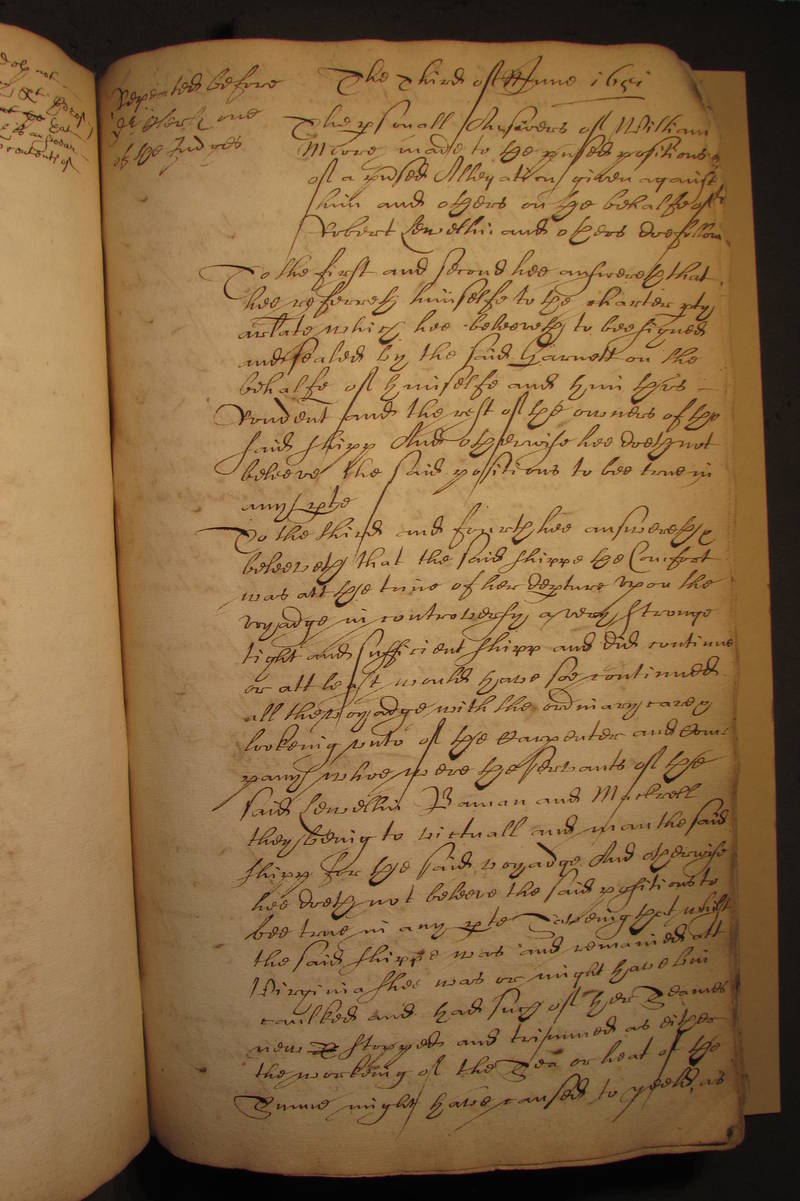 Repeated before
Dr Clerk one
of the Judges
The Third of June 1651
The psonall Answers of William
Moore made to the pnsed positions
of a pnsed Allegation given against
him and others on the behalfe of
Robert Lewellin and others doe follow
To the first and second hee answereth that
hee referreth himselfe to the charter pty
arlate which hee beleeveth to bee signed
and sealed by the said Garnett on the
behalfe of himselfe and him this
Rondent and the rest of the owners of the
said shipp And otherwise hee doeth not
beleeve the said positions to bee true in
any pte
To the third and fourth hee answereth
beleeveth that the said shippe the Comfort
was att the time of her depture upon the
voyadge in controversy a very stronge
tight and sufficient shipp and did continue
or att least would have soe continued
all the voyadge with the ordinary care
lookeing unto of the Carpenter and Com
pany whoe were the servants of the
said Lewellin Baman and Mackrell
they being to victuall and man the said
shipp for the said voyadge And otherwise
hee doeth not beleeve the said positions to
bee true in any pte Saveing that whilst
the said shippe was and remained att
Virginia shee was or might have bin
caulked and had such of her Seames
new stopped and trimmed as either
the workeing of the Sea or heat of the
Sunne might have caused to yeeld, as